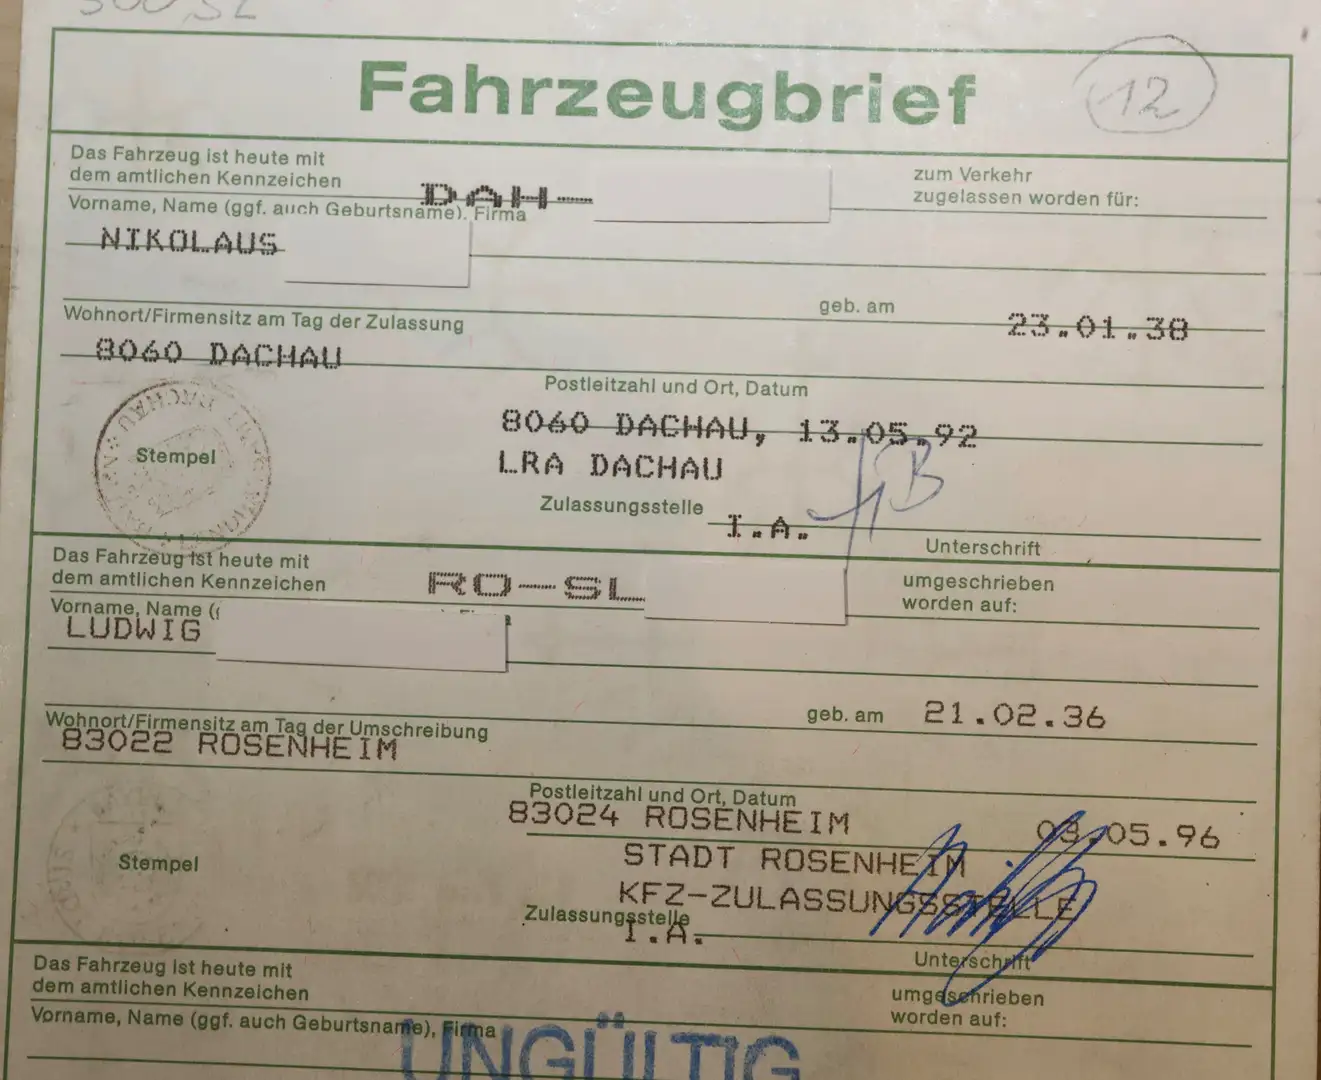 500 SL
Fahrzeugbrief
12
Das Fahrzeug ist heute mit
dem amtlichen Kennzeichen
DAH-
zum Verkehr
zugelassen worden für:
Vorname, Name (ggf. auch Geburtsname), Firma
NIKOLAUS
geb. am
23.01.38
Wohnort/Firmensitz am Tag der Zulassung
8060 DACHAU
Postleitzahl und Ort, Datum
8060 DACHAU, 13.05.92
Stempel
LRA DACHAU
Zulassungsstelle
I.A.
Unterschrift
Das Fahrzeug ist heute mit
dem amtlichen Kennzeichen
RO-SL
umgeschrieben
worden auf:
Vorname, Name (
LUDWIG
geb. am 21.02.36
Wohnort/Firmensitz am Tag der Umschreibung
83022 ROSENHEIM
Postleitzahl und Ort, Datum
83024 ROSENHEIM 03.05.96
Stempel
STADT ROSENHEIM
KFZ-ZULASSUNGSSTELLE
Zulassungsstelle
I.A.
Unterschrift
Das Fahrzeug ist heute mit
dem amtlichen Kennzeichen
umgeschrieben
worden auf:
Vorname, Name (ggf. auch Geburtsname), Firma
UNGÜLTIG